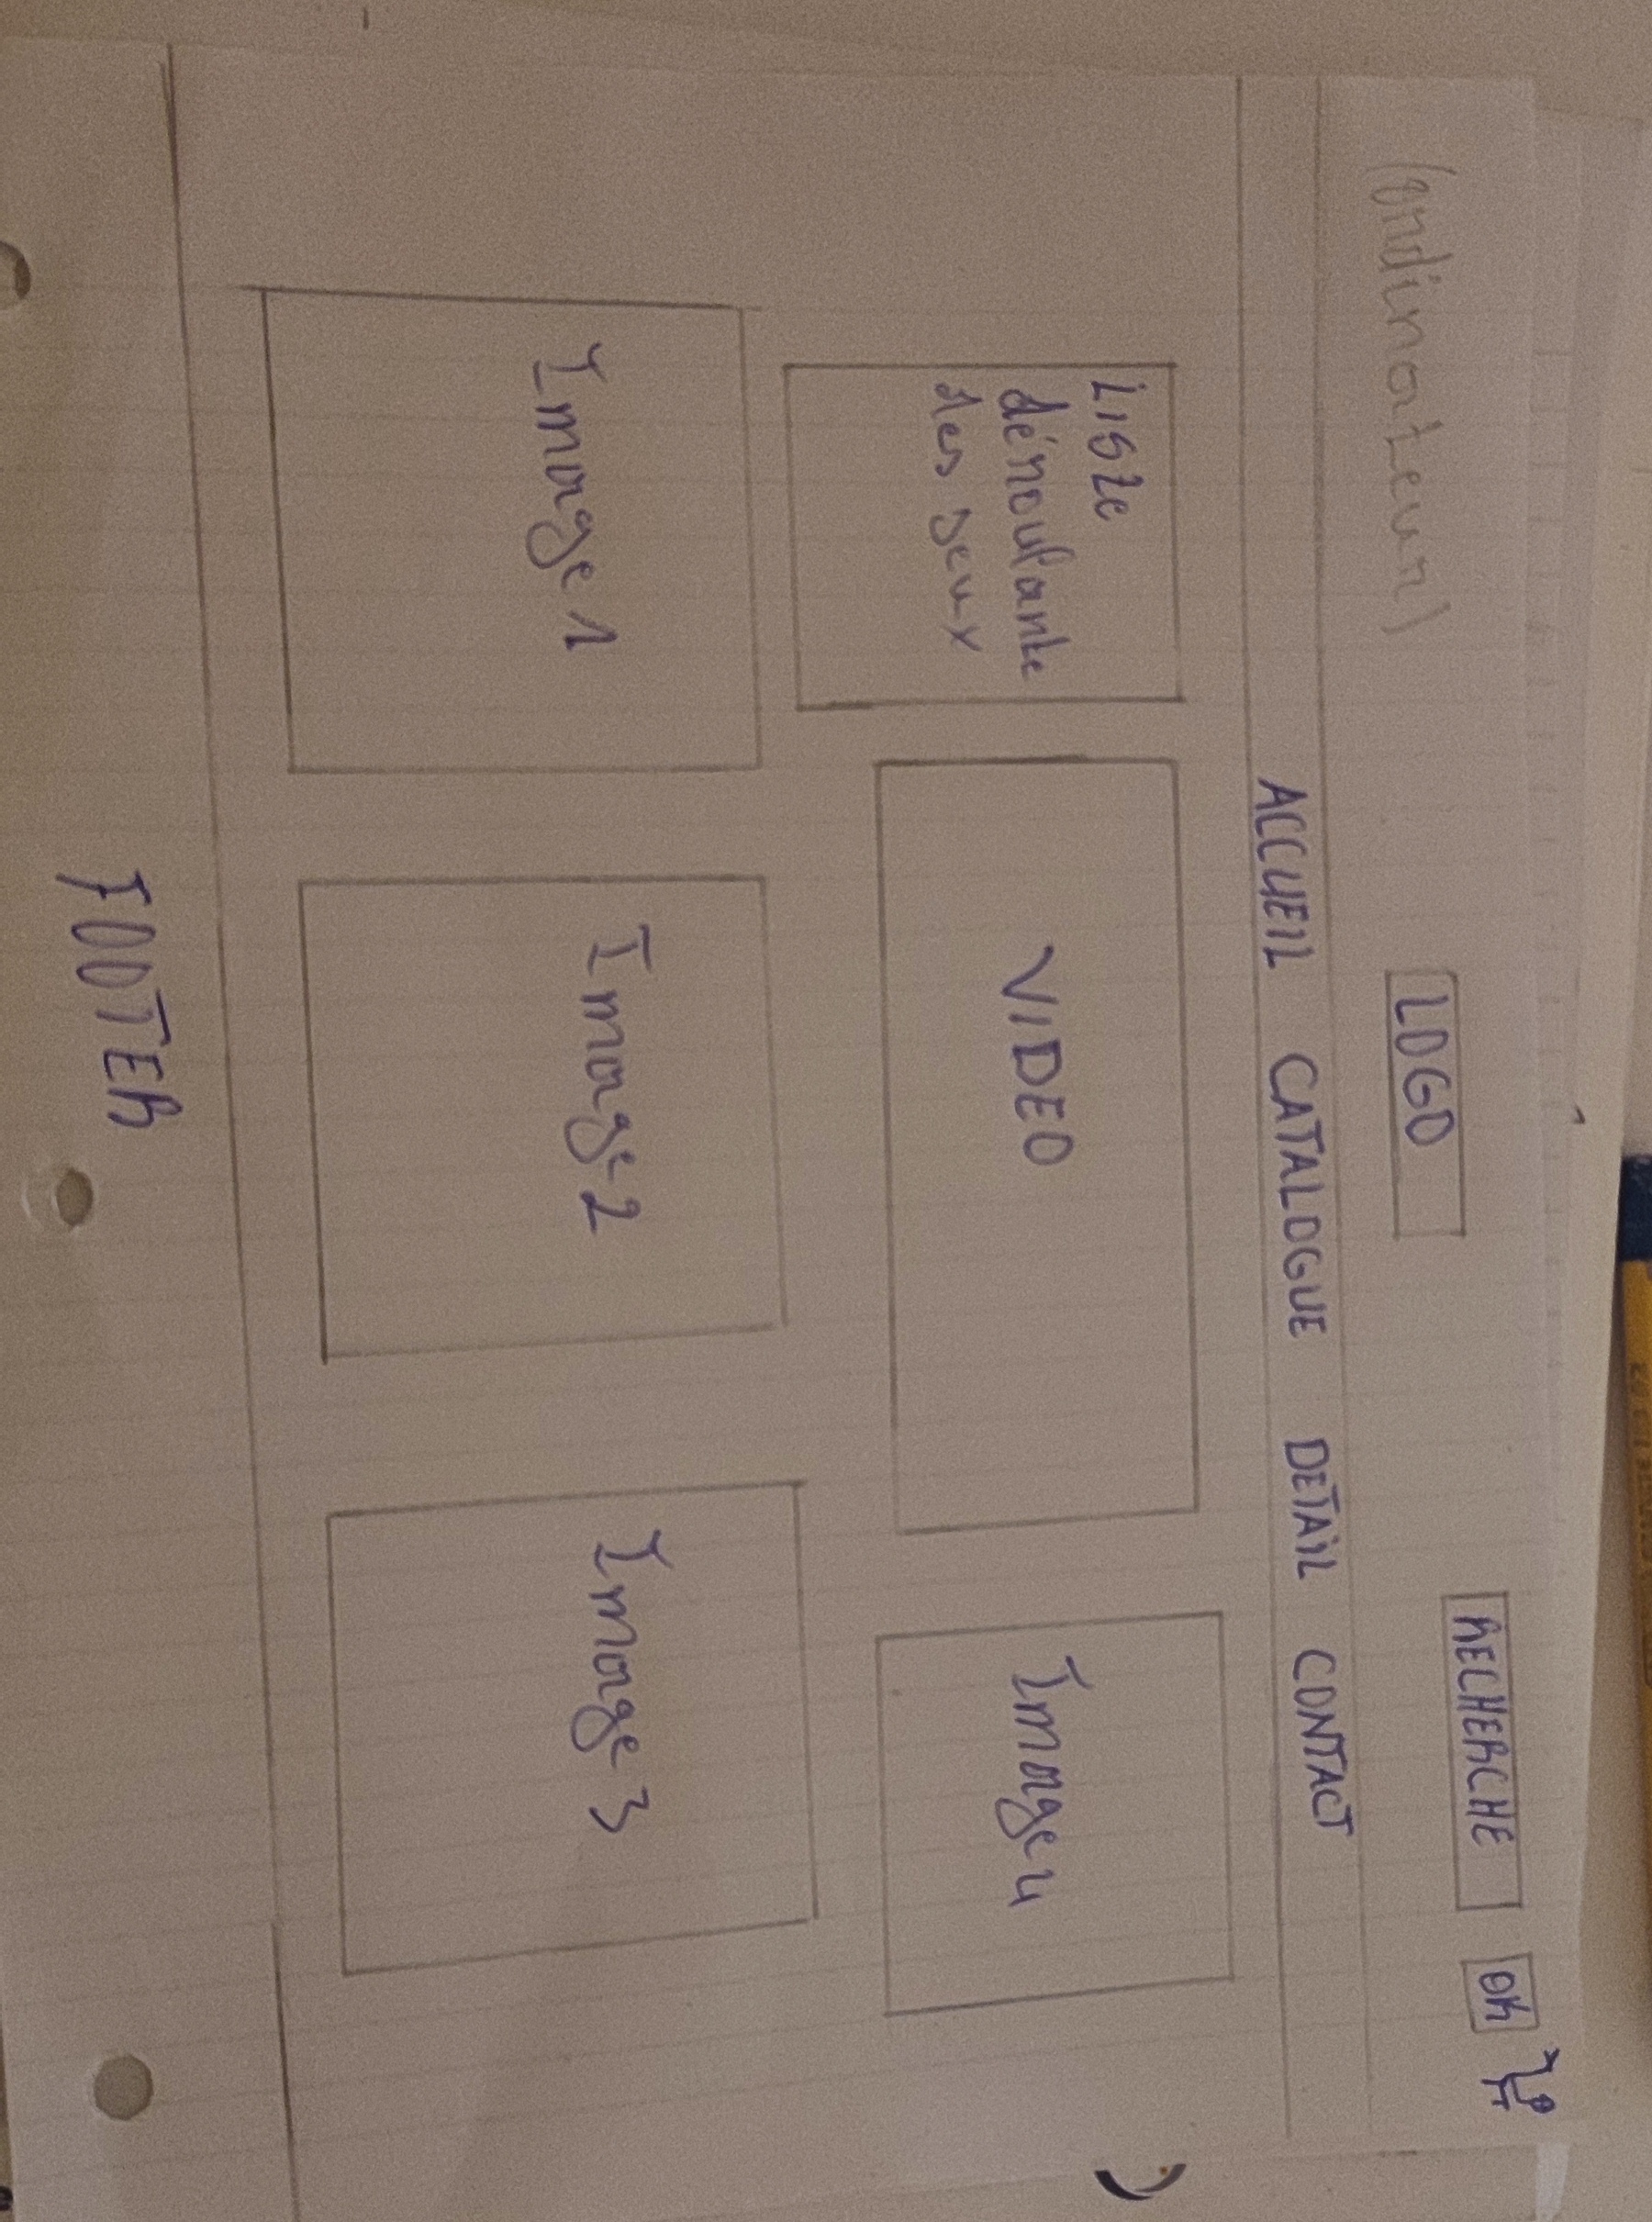 (ordinateur)
LOGO
RECHERCHE
OK
ACCUEIL CATALOGUE DETAIL CONTACT
Liste
déroulante
des jeux
VIDEO
Image 4
Image 1
Image 2
Image 3
FOOTER